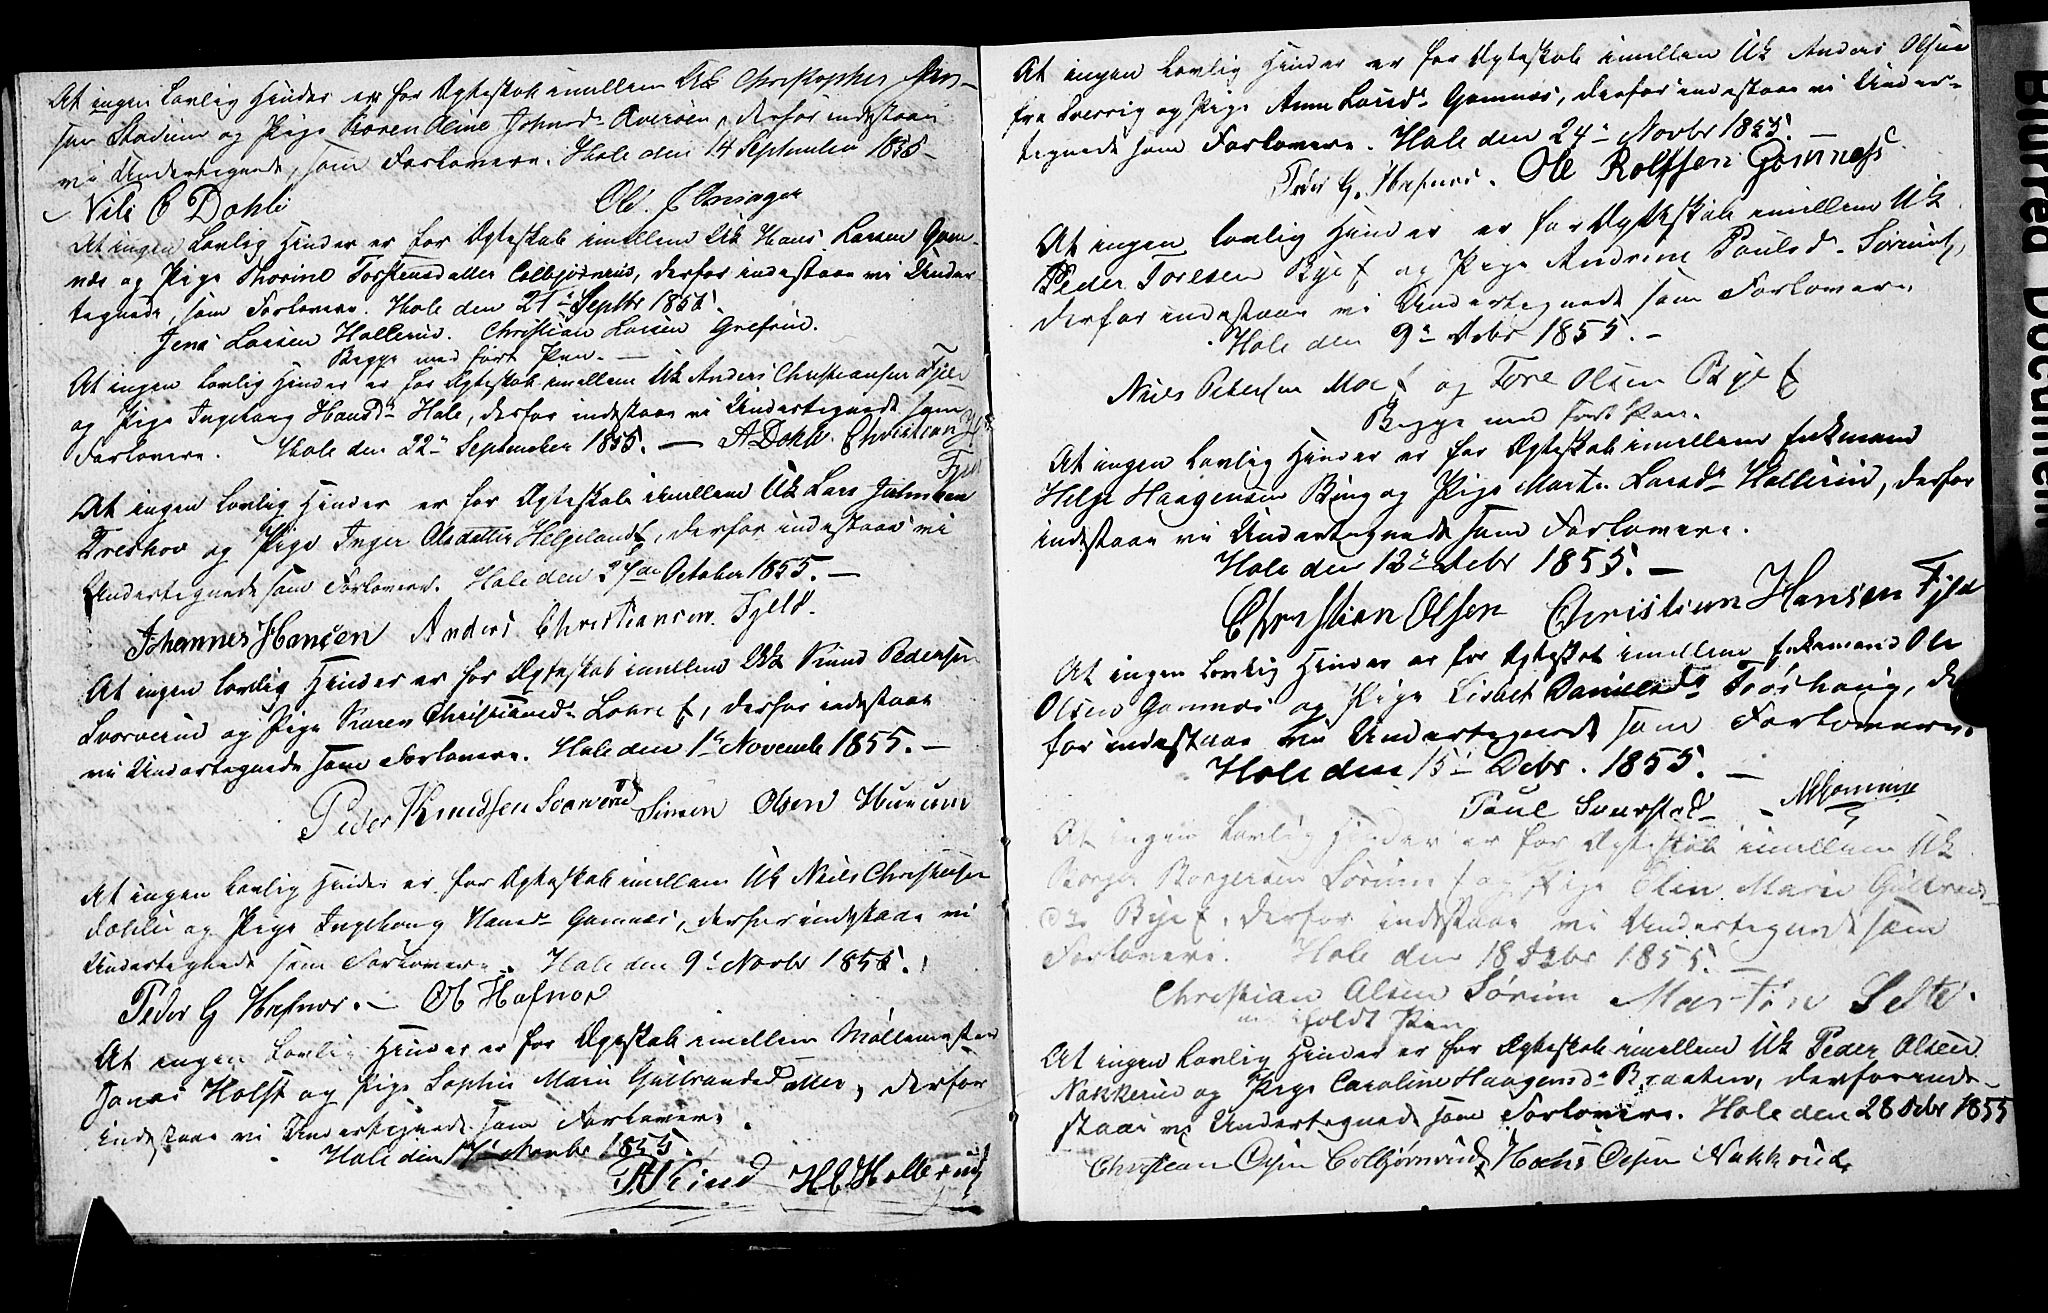 At ingen lovlig Hinder er for Ægteskab imellem Uk Christopher
sen Stadum og Pige Karen Oline Johnsd. Averøen, derfor indestaae
vi Undertegnede, som Forlovere. Hole den 14 September 1855
Nils C Dohli Ole
At ingen lovlig Hinder er for Ægteskab imellem Uk Hans Larsen Gom-
næs og Pige Thorine Torstensdatter Colbjørnrud, derfor indestaae vi Under
tegnede, som Forlovere. Hole den 21de Septbr 1855.
Jens Larsen Hollerud. Christian Larsen Grefsrud.
Begge med ført Pen.
At ingen lovlig Hinder er for Ægteskab imellem Uk Anders Christiansen Fjeld
og Pige Ingeborg Hansd. Hole, derfor indestaae vi Undertegnede som
Forlovere. Hole den 22. September 1855. — A Dohli. Christian
Fjeld
At ingen lovlig Hinder er for Ægteskab imellem Uk Lars Johnsen
Treskov og Pige Inger Olsdatter Helgeland, derfor indestaae vi
Undertegnede som Forlovere. Hole den October 1855. —
Johannes Hansen Anders Christiansen Fjeld.
At ingen lovlig Hinder er for Ægteskab imellem Uk Knud Pedersen
Svarverud og Pige Karen Christiansd. Lohre f, derfor indestaae
vi Undertegnede som Forlovere. Hole den 1ste Novemb 1855. —
Peder Knudsen Svarverud Simen Olsen Hurum
At ingen lovlig Hinder er for Ægteskab imellem Uk Niels Christensen
Dæhlie og Pige Ingeborg Hansd. Gomnæs, derfor indestaae vi
Undertegnede som Forlovere. Hole den 9. Novbr 1855.
Peder G Hæfnæs. — Ob Hafnor
At ingen lovlig Hinder er for Ægteskab imellem Møllemester
Jonas Holst og Pige Sophie Marie Gulbrandsdatter, derfor
indestaae vi Undertegnede som Forlovere.
Hole den Novbr 1855.
H C Hollerud
At ingen lovlig Hinder er for Ægteskab imellem Uk Anders Olsen
fra Sverrig og Pige Anne Larsd. Gomnæs, derfor indestaae vi Under-
tegnede som Forlovere. Hole den 24. Novbr 1855. —
Peder G. Hæfnæs. Ole Rolfsen Gomnæss
At ingen lovlig Hinder er for Ægteskab imellem Uk
Peder Toresen Bye f og Pige Andrine Paulsd. Sørum f,
derfor indestaae vi Undertegnede som Forlovere.
Hole den 9. Debr 1855. —
Niels Petersen Moe f og Tore Olsen Bye f
Begge med ført Pen.
At ingen lovlig Hinder er for Ægteskab imellem Enkemand
Helge Haagensen Burg og Pige Marte Larsd. Hollerud, derfor
indestaae vi Undertegnede som Forlovere.
Hole den 12. Debr 1855. —
Christian Olsen Christian Hansen Fjeld
At ingen lovlig Hinder er for Ægteskab imellem Enkemand Ole
Olsen Gomnæs og Pige Lisbet Danielsd. Trøshaug, der
for indestaae vi Undertegnede som Forlovere.
Hole den 15. Debr. 1855. —
Paul Svarstad
At ingen lovlig Hinder er for Ægteskab imellem Uk
Borger Borgersen Sørum f og Pige Elen Marie Gulbrands
dr Bye f, derfor indestaae vi Undertegnede som
Forlovere. Hole den 18 Debr 1855. —
Christian Olsen Sørum Martin Selte.
m holdt Pen
At ingen lovlig Hinder er for Ægteskab imellem Uk Peder Olsen
Nakkerud og Pige Caroline Haagensd. Braaten, derfor inde-
staae vi Undertegnede som Forlovere. Hole den 28 Debr 1855
Christian Olsen Colbjørnrud, Hans Olsen Nakkerud
Blurred Document